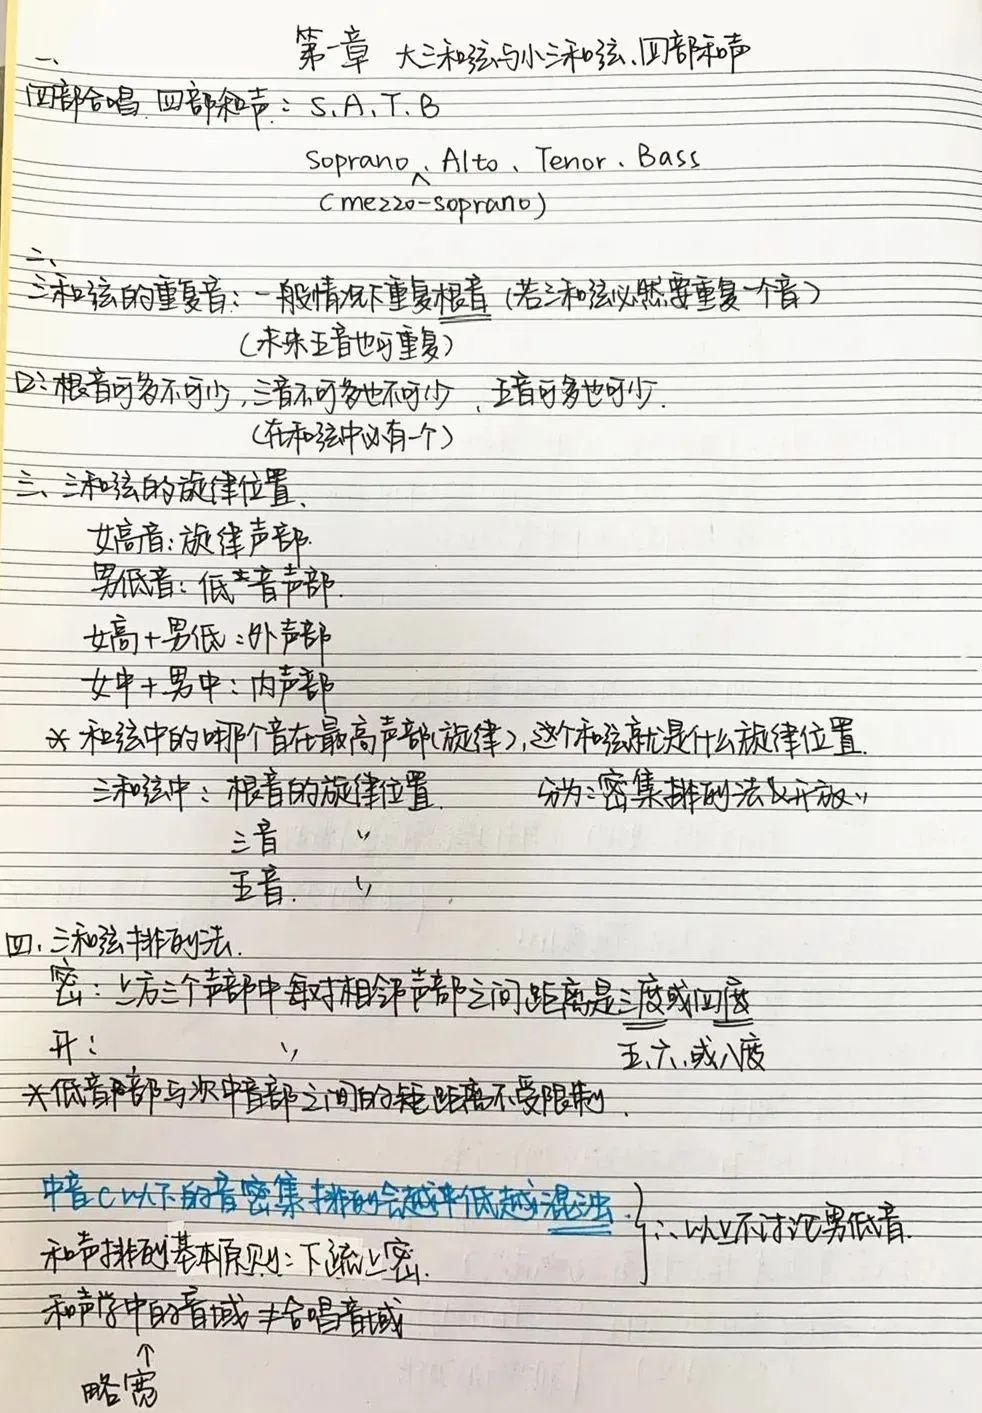 第一章 大三和弦与小三和弦、四部和声
一、
四部合唱、四部和声：S、A、T、B
Soprano、Alto、Tenor、Bass
(mezzo-soprano)
二、
三和弦的重复音：一般情况下重复根音（若三和弦必然要重复一个音）
（未来五音也可重复）
口：根音可多不可少，三音不可多也不可少、五音可多也可少.
（在和弦中必有一个）
三、三和弦的旋律位置、
女高音：旋律声部.
男低音：低音声部.
女高+男低：外声部
女中+男中：内声部
* 和弦中的哪个音在最高声部(旋律)，这个和弦就是什么旋律位置.
三和弦中：根音的旋律位置. 分为：密集排列法&开放〃
三音 〃
五音. 〃
四、三和弦排列法.
密：上方三个声部中每对相邻声部之间距离是三度或四度
开： 〃 五、六、或八度
*低音部与次中音部之间的距离不受限制.
中音C以下的音密集排列会越低越混浊.
∴以上不讨论男低音.
和声排列基本原则：下疏上密.
和声学中的音域≠合唱音域
↑
略宽